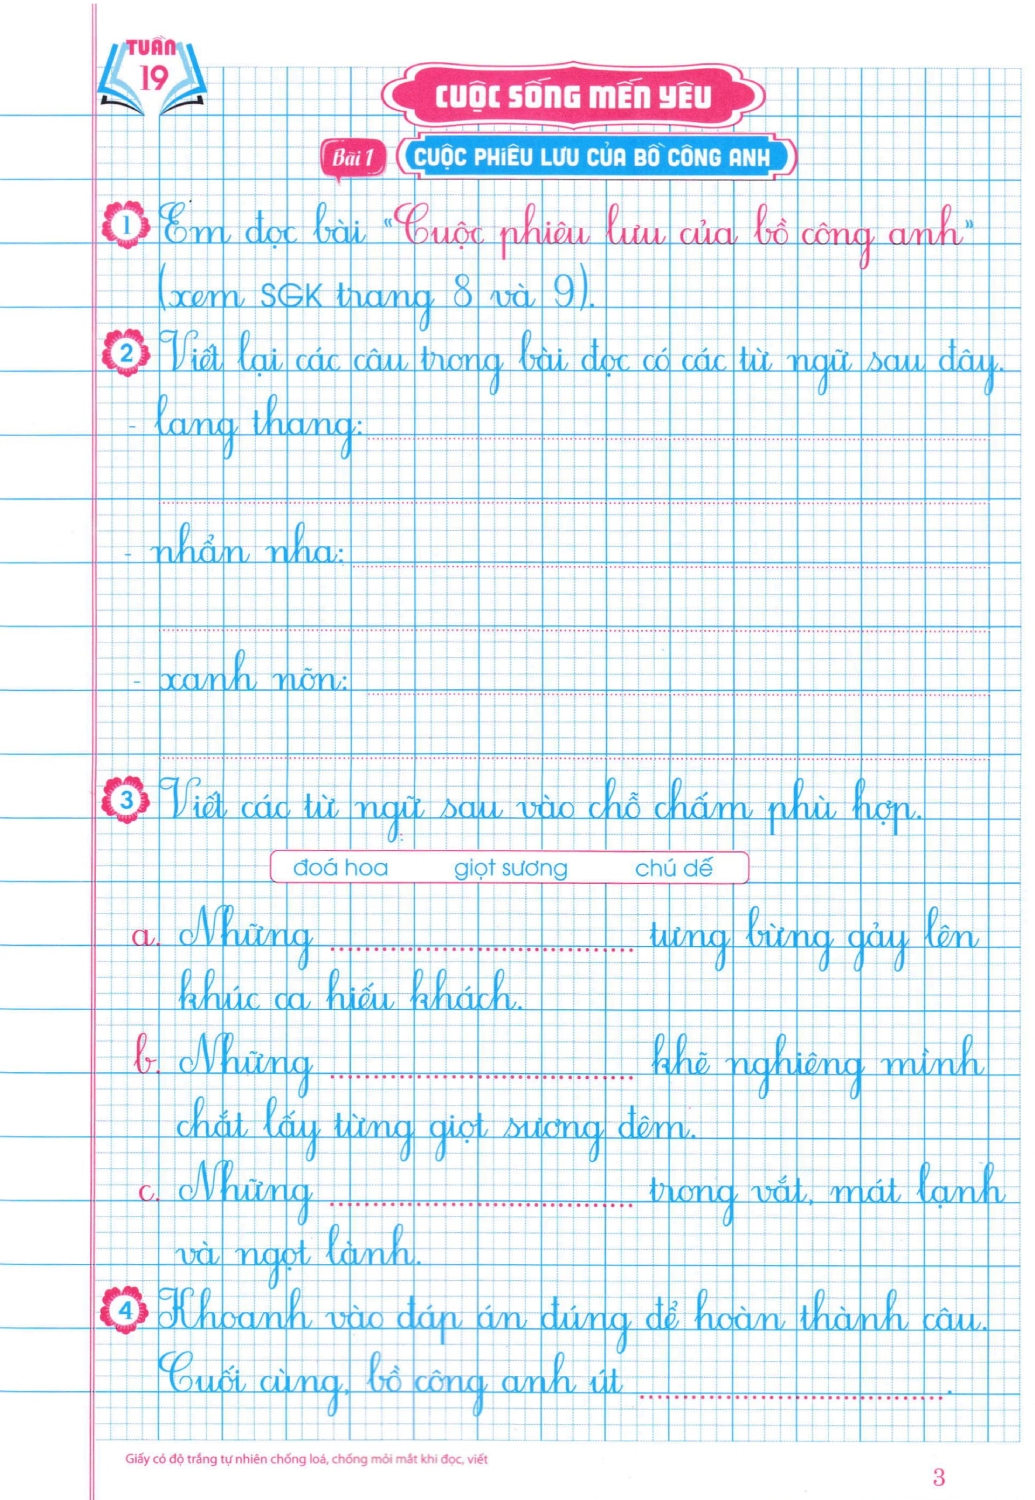 TUẦN
19
CUỘC SỐNG MẾN YÊU
Bài 1 CUỘC PHIÊU LƯU CỦA BỒ CÔNG ANH
1 Em đọc bài “Cuộc phiêu lưu của bồ công anh”
(xem SGK trang 8 và 9).
2 Viết lại các câu trong bài đọc có các từ ngữ sau đây.
- lang thang:
- nhẩn nha:
- xanh nõn:
3 Viết các từ ngữ sau vào chỗ chấm phù hợp.
đoá hoa giọt sương chú dế
a. Những ........ tưng bừng gảy lên
khúc ca hiếu khách.
b. Những ........ khẽ nghiêng mình
chắt lấy từng giọt sương đêm.
c. Những ........ trong vắt, mát lạnh
và ngọt lành.
4 Khoanh vào đáp án đúng để hoàn thành câu.
Cuối cùng, bồ công anh út ........ .
Giấy có độ trắng tự nhiên chống loá, chống mỏi mắt khi đọc, viết
3